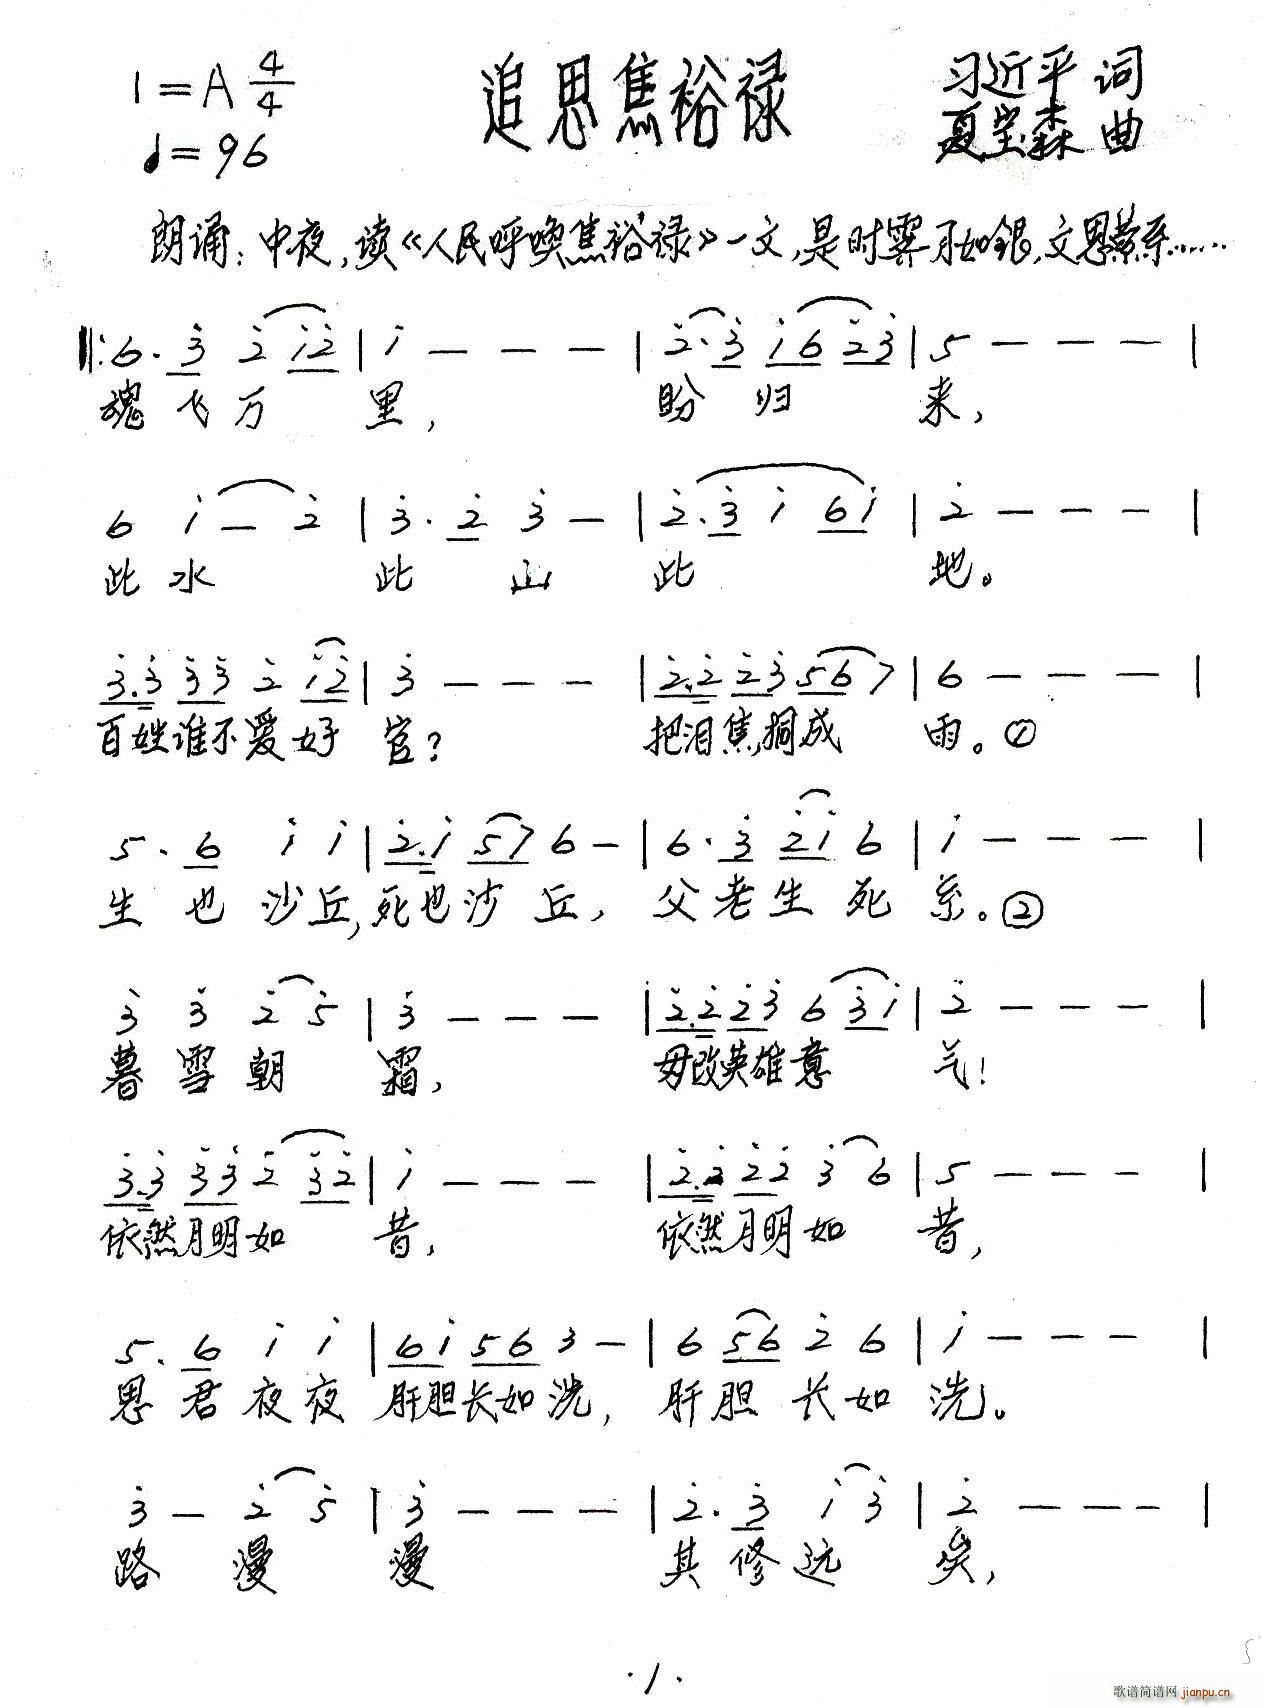 1=A 4/4
♩=96
追思焦裕禄
习近平 词
夏宝森 曲
朗诵：中夜，读《人民呼唤焦裕禄》一文，是时霁月如银，文思萦系……
‖: 6· 3̇ 2̇ 1̇2̇ | 1̇ — — — | 2̇·3̇ 1̇6 2̇3̇ | 5 — — — |
魂飞万里， 盼归来，
6 1̇ — 2̇ | 3̇· 2̇ 3̇ — | 2̇·3̇ 1̇ 61̇ | 2̇ — — — |
此水 此山此 地。
3̇·3̇ 3̇3̇ 2̇ 1̇2̇ | 3̇ — — — | 2̇·2̇ 2̇3̇ 567 | 6 — — — |
百姓谁不爱好官？ 把泪焦桐成雨。①
5· 6 1̇ 1̇ | 2̇·1̇ 57 6 — | 6·3̇ 2̇1̇ 6 | 1̇ — — — |
生也沙丘，死也沙丘，父老生死系。②
3̇ 3̇ 2̇ 5̇ | 3̇ — — — | 2̇·2̇ 2̇3̇ 6 3̇1̇ | 2̇ — — — |
暮雪朝霜， 毋改英雄意气！
3̇·3̇ 3̇3̇ 2̇ 3̇2̇ | 1̇ — — — | 2̇·2̇ 2̇2̇ 3̇ 6 | 5 — — — |
依然月明如昔， 依然月明如昔，
5· 6 1̇ 1̇ | 61̇ 56 3 — | 6 56 2̇ 6 | 1̇ — — — |
思君夜夜 肝胆长如洗，肝胆长如洗。
3̇ — 2̇ 5̇ | 3̇ — — — | 2̇· 3̇ 1̇ 3̇ | 2̇ — — — |
路漫漫 其修远矣，
·1·
歌谱简谱网 jianpu.cn